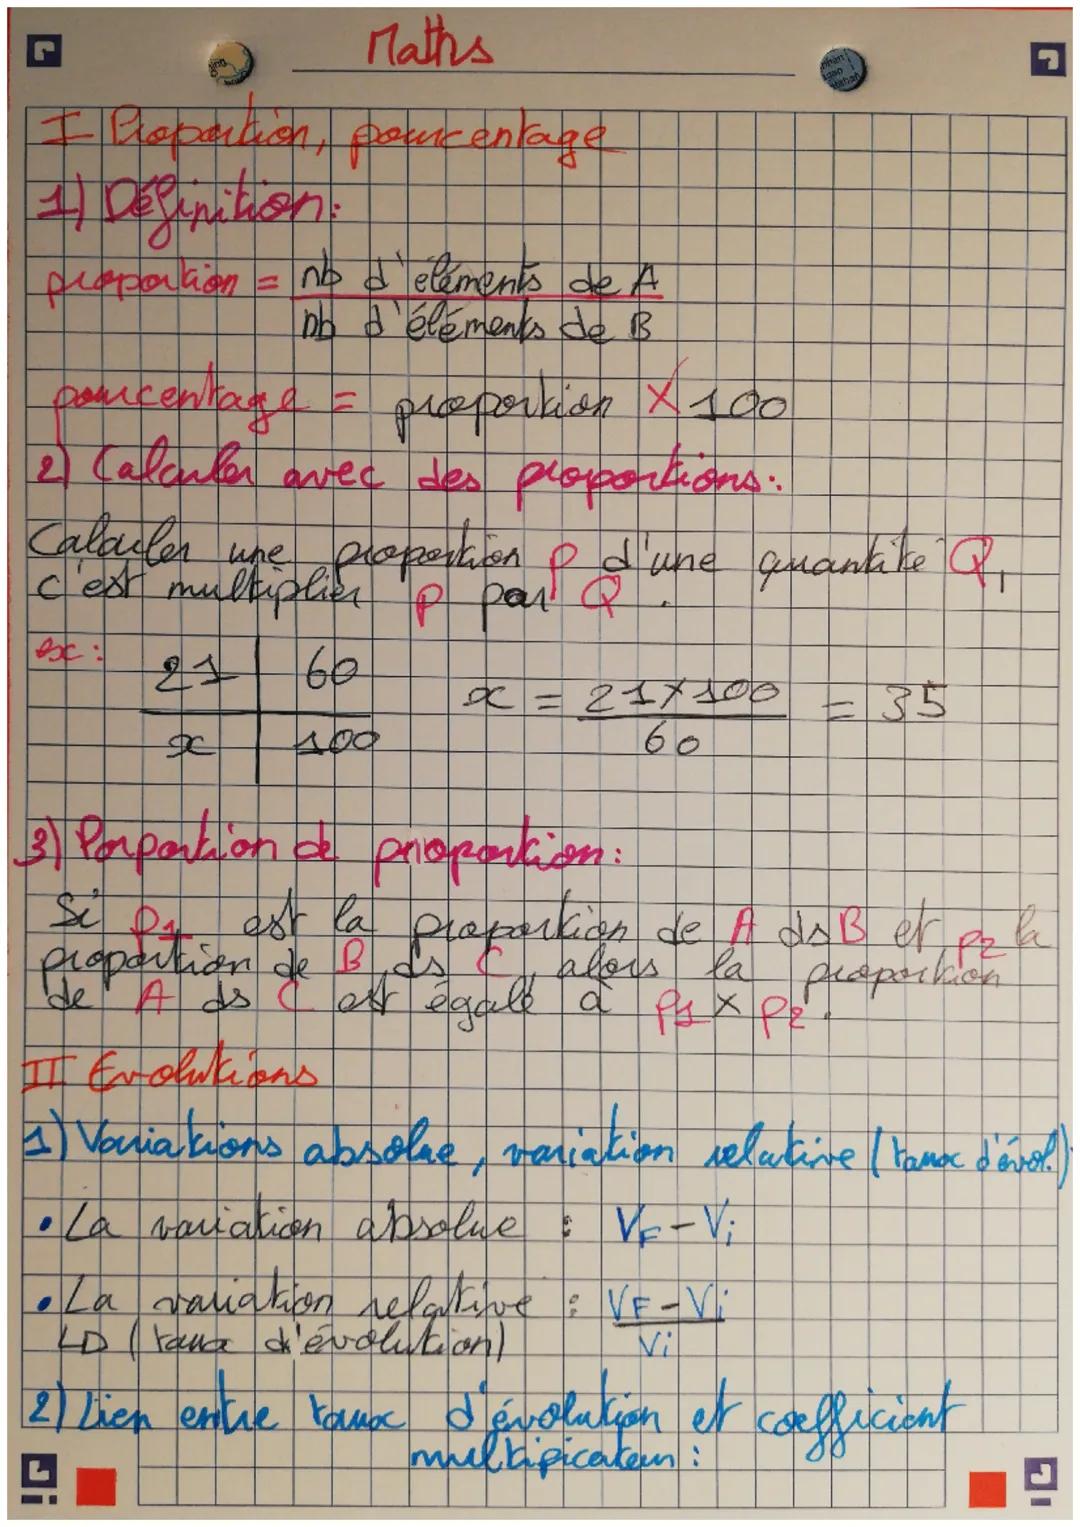 Maths
I Proportion, pourcentage
1) Définition:
proportion = nb d'éléments de A
nb d'éléments de B
pourcentage = proportion × 100
2) Calculer avec des proportions:
Calculer une proportion p d'une quantité Q,
c'est multiplier p par Q.
ex: 21 | 60
x | 100
x = 21×100 = 35
60
3) Porportion de proportion:
Si p1 est la proportion de A ds B et p2 la
proportion de B ds C, alors la proportion
de A ds C est égale à p1 × p2.
II Evolutions
1) Variations absolue, variation relative (taux d'évol.)
• La variation absolue : VF - Vi
• La variation relative : VF - Vi
Vi
(taux d'évolution)
2) Lien entre taux d'évolution et coefficient
multipicateur :